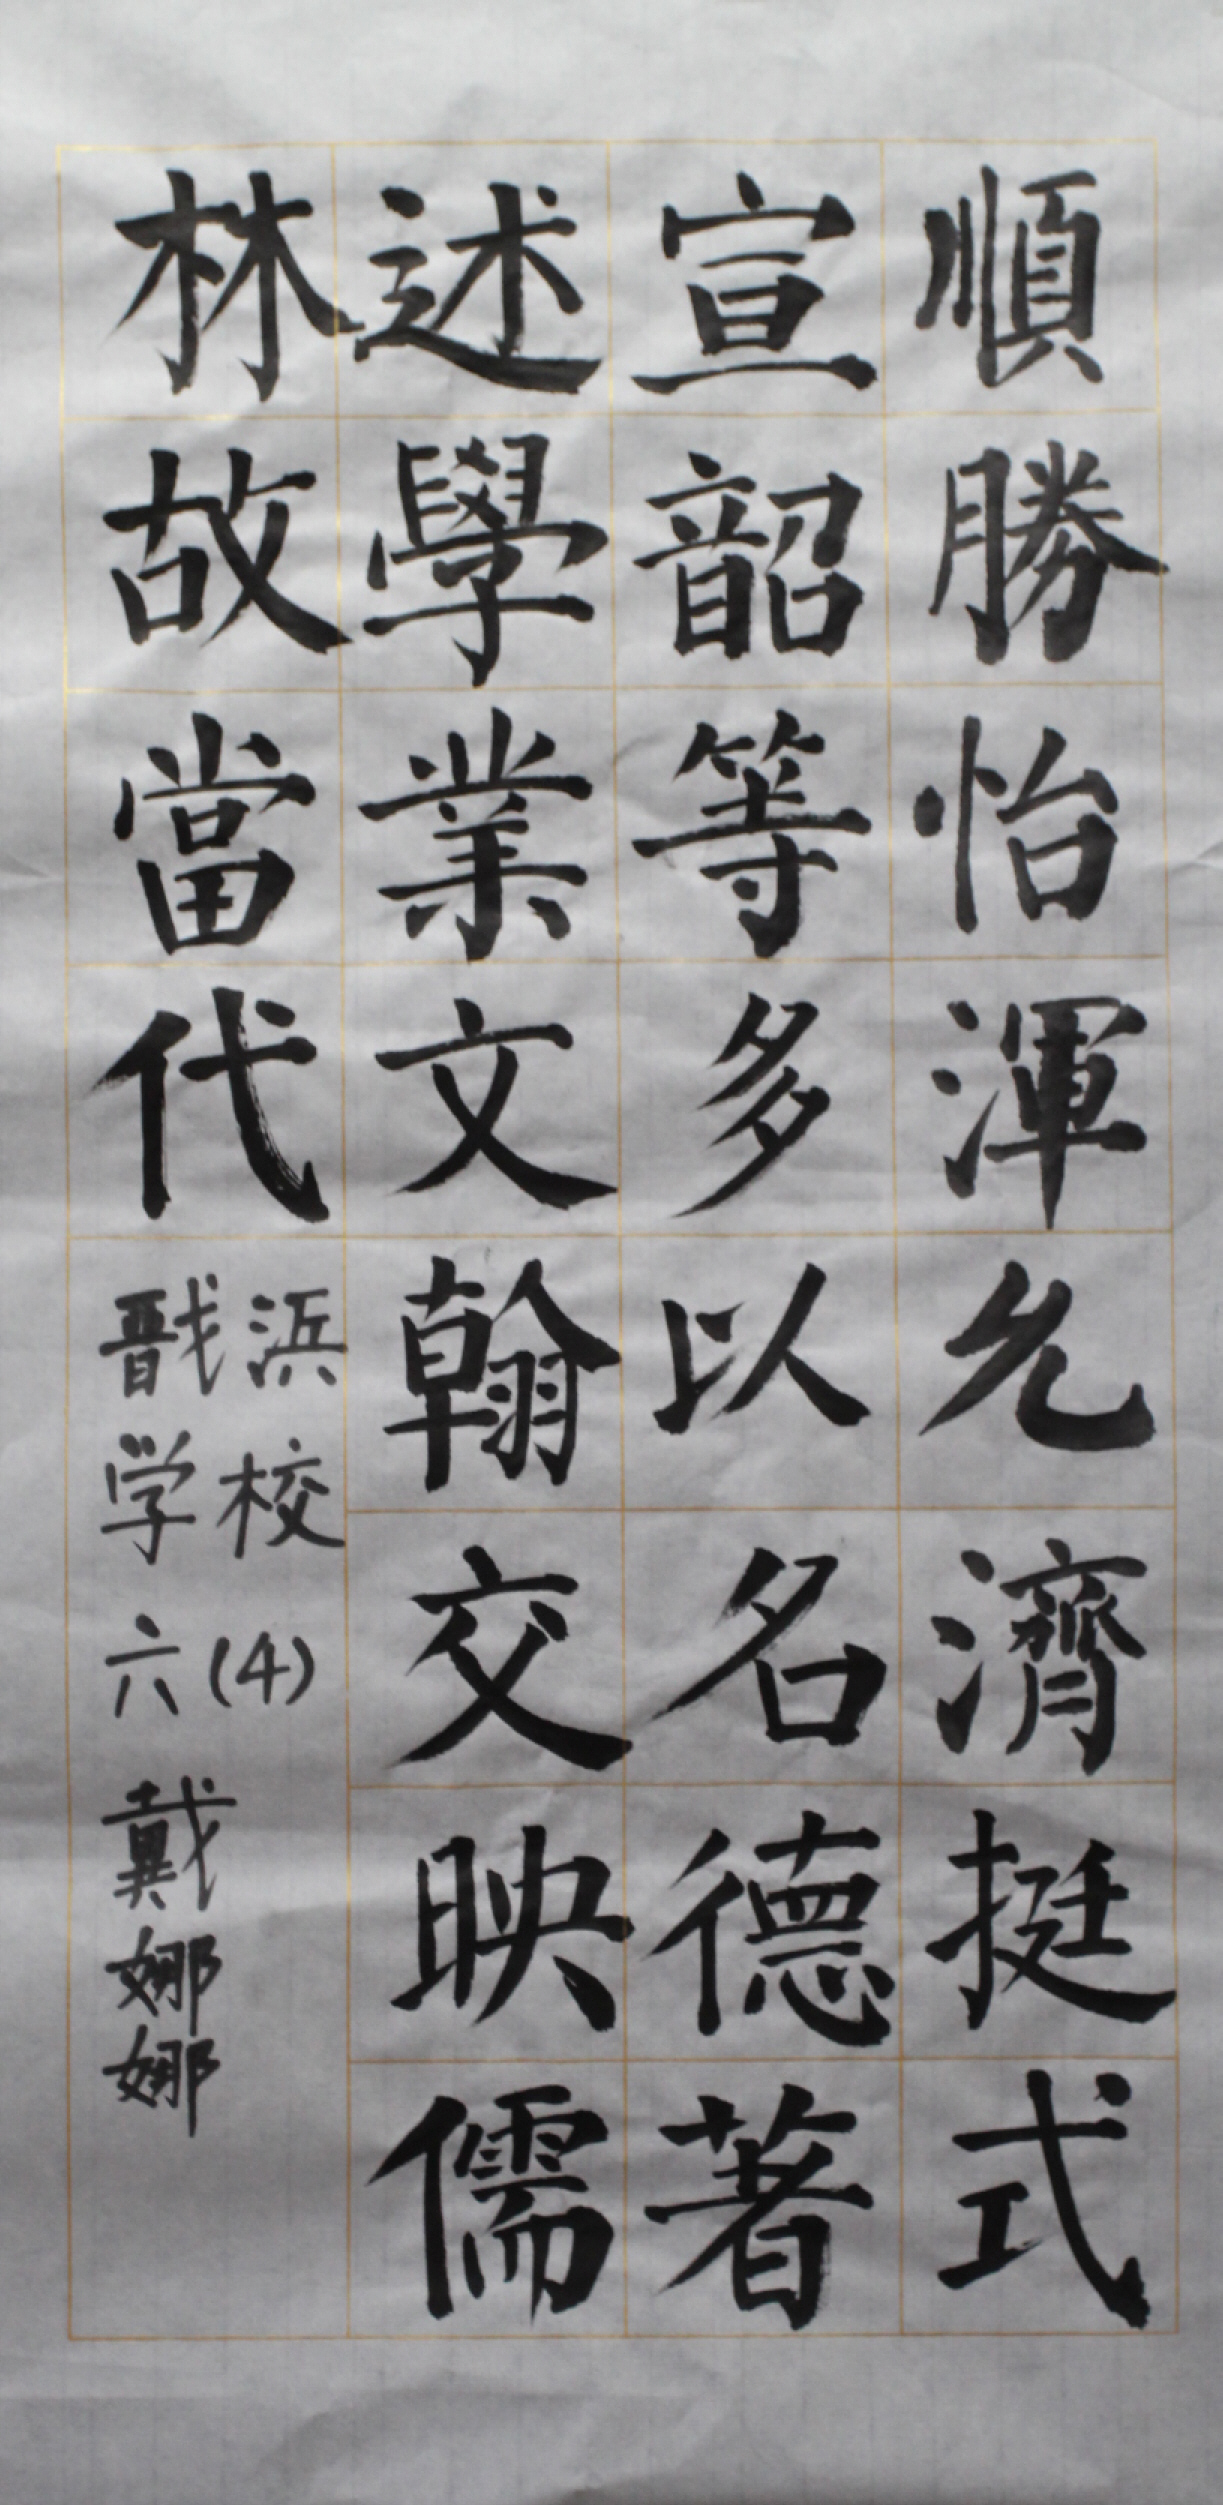 順勝怡渾允濟挺式
宣韶等多以名德著
述學業文翰交映儒
林故當代
戬浜
学校
六(4)
戴娜娜